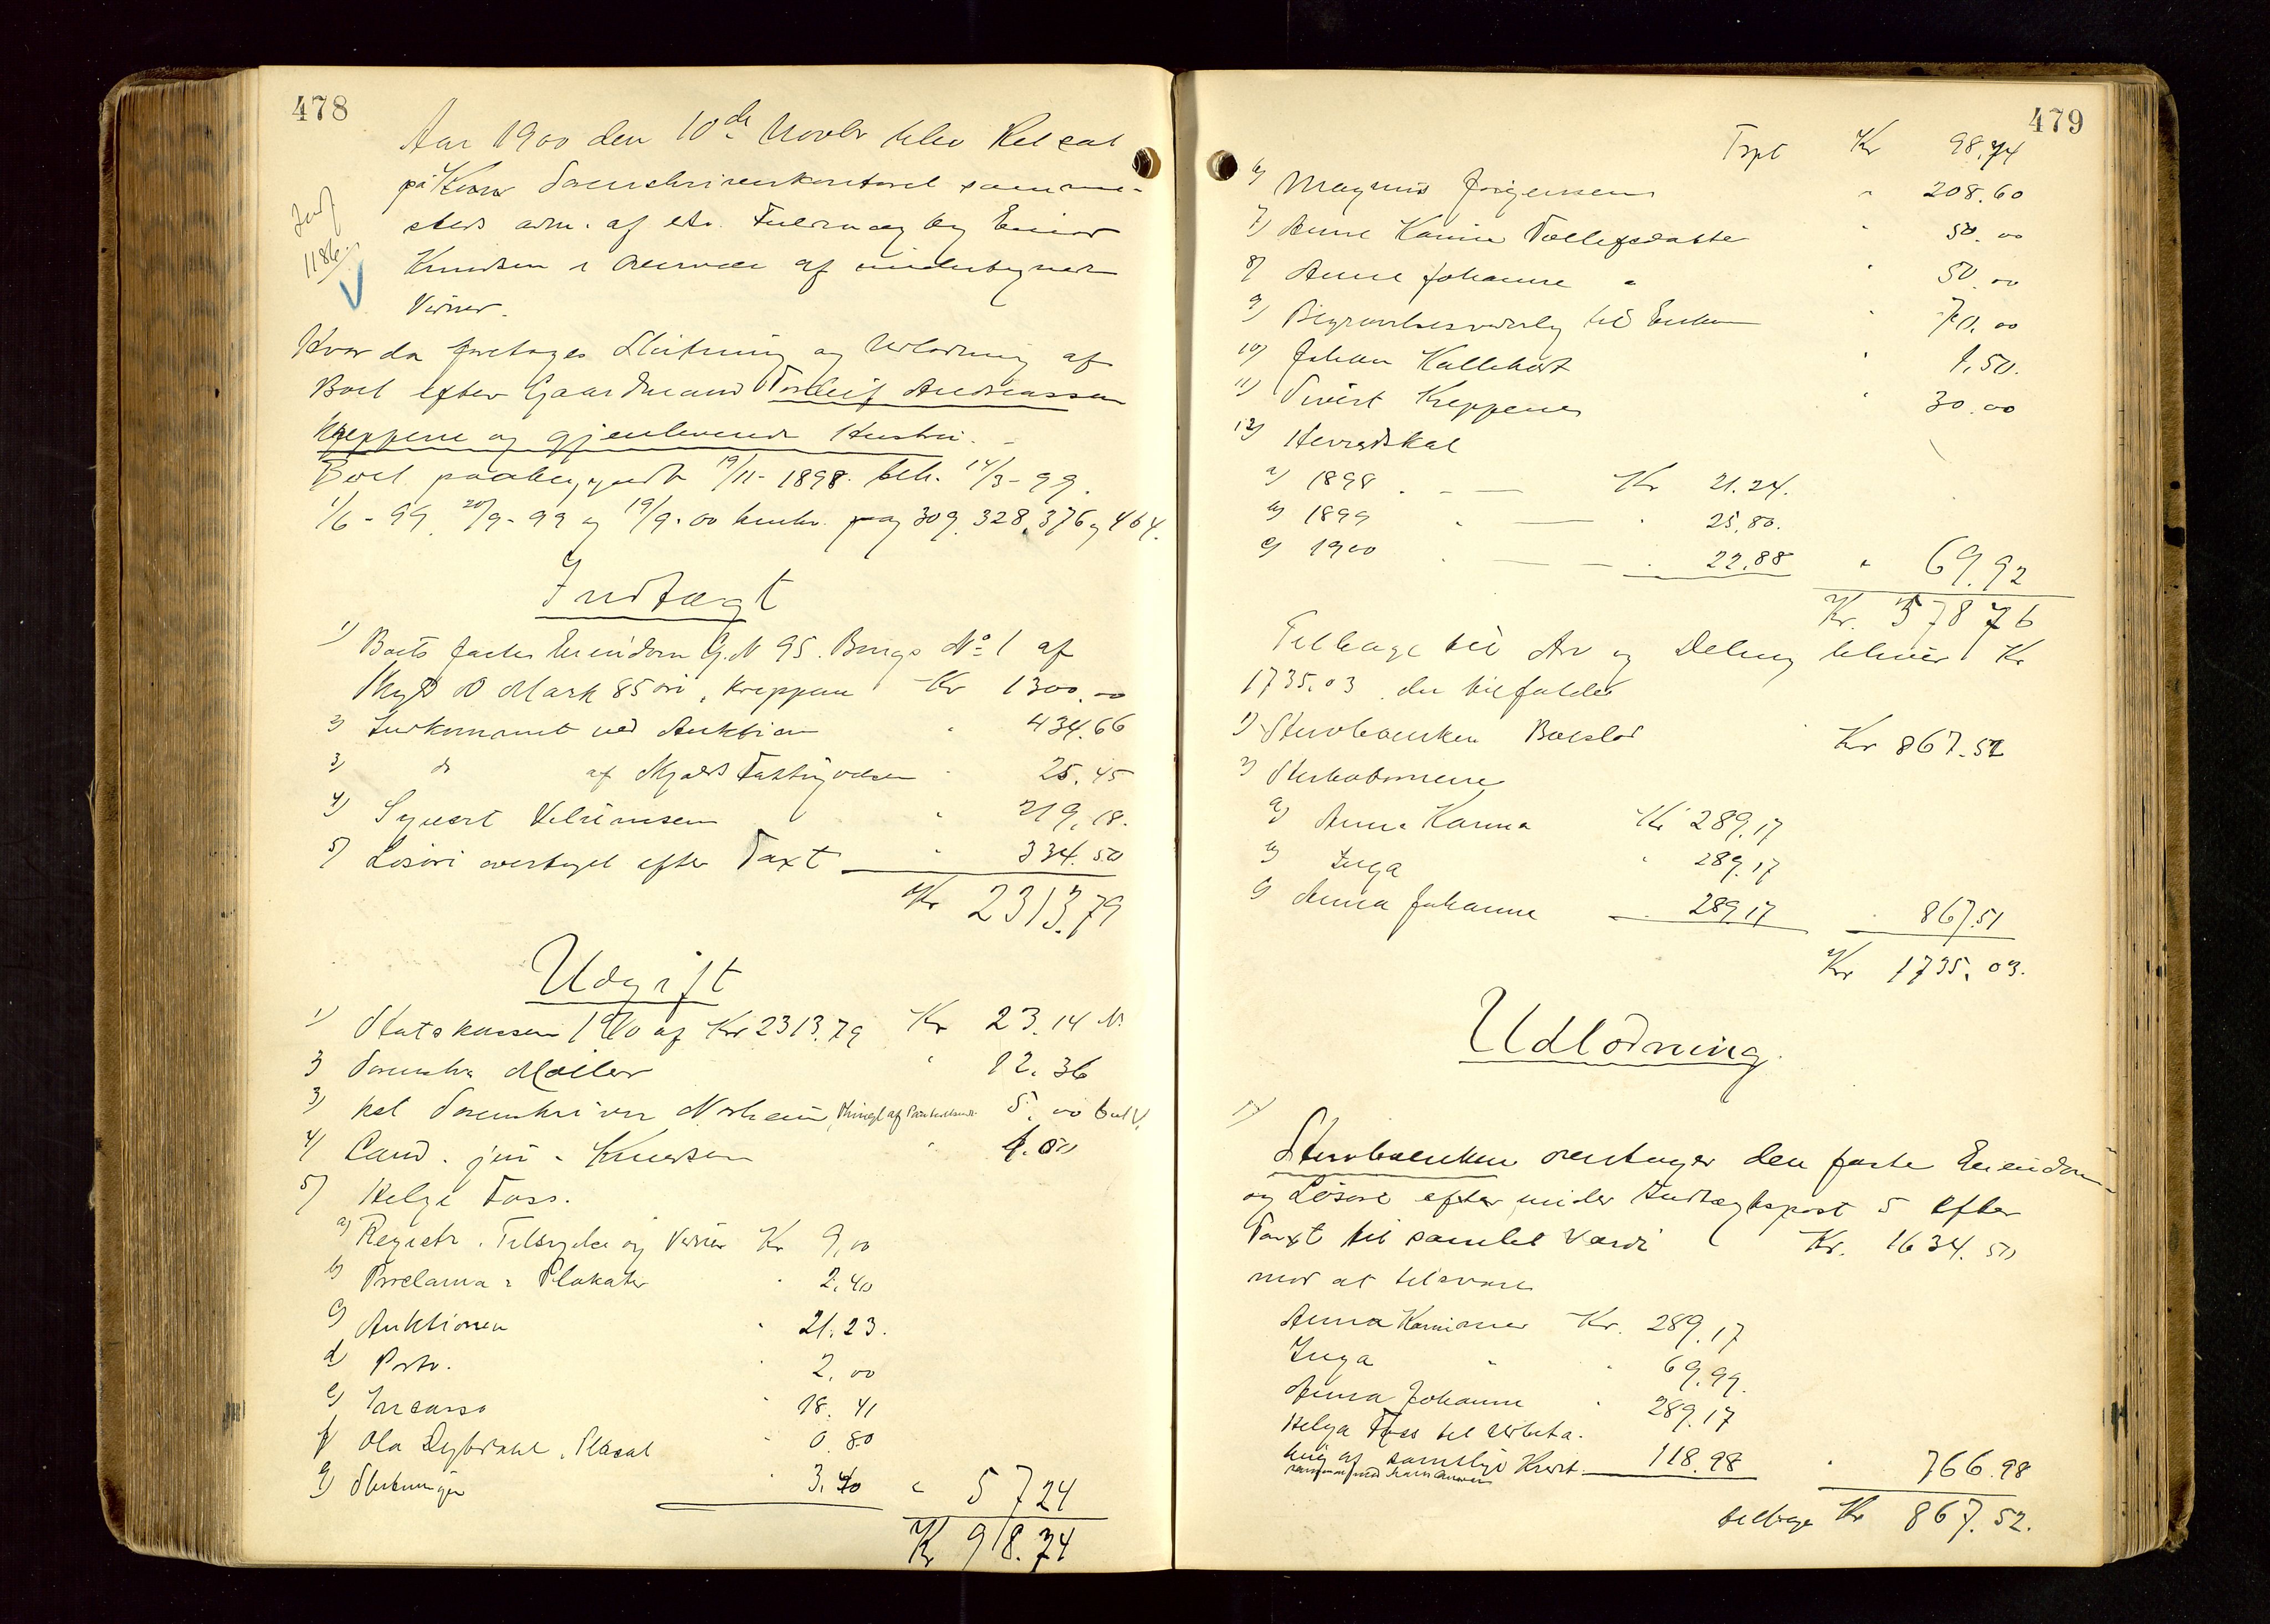 478
Aar 1900 den 10de Novbr blev Ret sat
på Sorenskriverkontoret samme-
steds adm. af Einar
Knudsen i Overvær af undertegnede
Vidner.
Indf
1186
Hvor da foretoges Slutning og Udlodning af
Boet efter Gaardmand Torleif Andreassen
Kreppene og gjenlevende Hustru. -
Boet paabegyndt 19/11 - 1898. beh. 14/3 - 99.
1/6 - 99. 20/9 - 99 og 19/9 - 00 pag 309. 328, 376 og 464.
Indtægt
1) Boets faste Eiendom G.N 95. Brugs No 1 af
Skyld 0 Mark 85 øre, Kreppene Kr 1300.00
2) Indkommet ved Auktion " 434.66
3) do af " 25.45
4) Syvert " 219.18.
5) Løsøre overtaget efter Taxt " 334.50
Kr 2313.79
Udgift
1) Statskassen 1% af Kr 2313.79 Kr 23.14
2) Sorenskr. Møller " 12.36
3) kst Sorenskriver 5.00
4) Cand. jur. Knudsen " 1.00
5) Helge Foss.
a) Registr. Tilsigelse og Vidner Kr 9,00
b) Proclama & Plakater " 2.40
c) Auktionen " 21.23.
d) Porto. " 2.00
e) Incasso " 18.41
f) Ola Dybdahl, Plakat " 0.80
g) Slutningen " 3.40 " 57 24
Kr 98.74
479
Trpt Kr 98,74
6) Magnus Jørgensen " 208.60
7) Anne Karine Tollefsdatter " 50.00
8) Anne Johanne " " 50.00
9) Begravelsesudlæg til Enken " 70.00
10) Johan Kallhovd " 1,50.
11) Sivert Kreppene " 30.00
12) Herredskat
a) 1898 . - — Kr 21.24.
b) 1899 . — . 25.80.
c) 1900 . — - . 22.88 " 69.92
Kr. 578 76
Tilbage til Arv og Deling bliver Kr
1735.03 der tilfalder
1) Stervboenken Boeslod Kr 867.52
2) Stervbobørnene
a) Anna Karine Kr 289,17
b) Inga " 289,17
c) Anna Johanne . 289,17 . 867.51
Kr 1735.03.
Udlodning.
1)
Stervboenken overtager den faste Eiendom
og Løsøre efter under Indtægtspost 5 efter
Taxt til samlet Værdi Kr. 1634.50
mod at tilsvare
Anna Kr. 289.17
Inga " " 69.99.
Anna Johanne . 289.17
Helge Foss til Udbeta-
ling af samtlige Kred. 118.98 " 766.98
tilbage Kr 867.52.